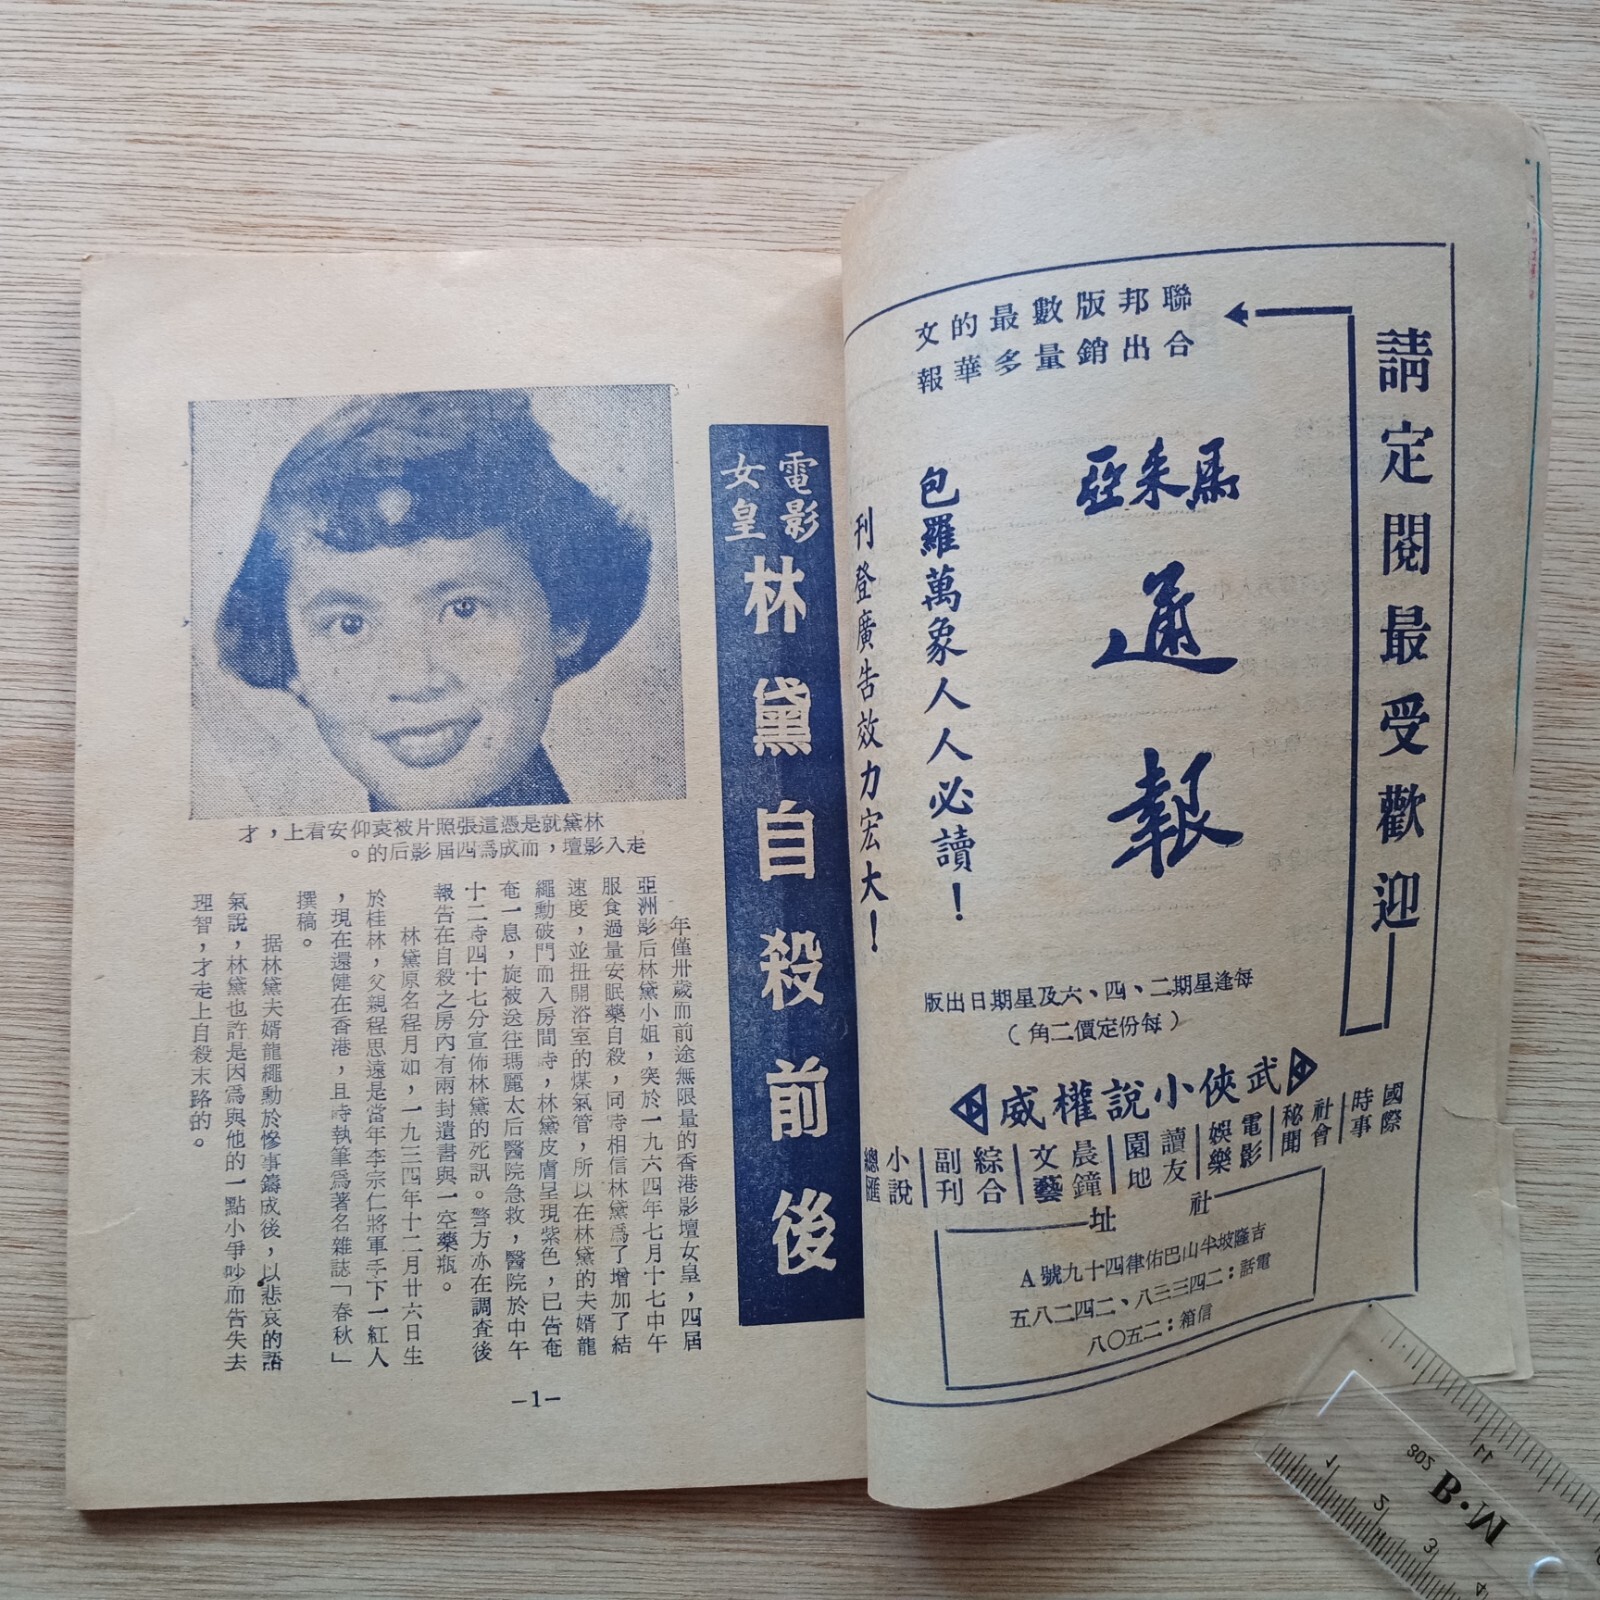 請定閱最受歡迎
聯合邦出版銷數量最多的華文報
馬來亞
通報
包羅萬象人人必讀！
刊登廣告效力宏大！
每逢星期二、四、六及星期日出版
（每份定價二角）
武俠小說權威
國際時事
社會秘聞
電影娛樂
讀友園地
晨鐘文藝
綜合副刊
小說總匯
社址
吉隆坡半山巴佑律四十九號A
電話：二四三三八、二四二八五
信箱：二五〇八
電影女皇
林黛自殺前後
林黛就是憑這張照片被袁仰安看上，才
走入影壇，而成為四屆影后的。
年僅卅歲而前途無限量的香港影壇女皇，四屆
亞洲影后林黛小姐，突於一九六四年七月十七中午
服食過量安眠藥自殺，同時相信林黛為了增加了結
速度，並扭開浴室的煤氣管，所以在林黛的夫婿龍
繩勳破門而入房間時，林黛皮膚呈現紫色，已告奄
奄一息，旋被送往瑪麗太后醫院急救，醫院於中午
十二時四十七分宣佈林黛的死訊。警方亦在調查後
報告在自殺之房內有兩封遺書與一空藥瓶。
林黛原名程月如，一九三四年十二月廿六日生
於桂林，父親程思遠是當年李宗仁將軍手下一紅人
，現在還健在香港，且時執筆為著名雜誌「春秋」
撰稿。
据林黛夫婿龍繩勳於慘事鑄成後，以悲哀的語
氣說，林黛也許是因為與他的一點小爭吵而告失去
理智，才走上自殺末路的。
—1—
B·M